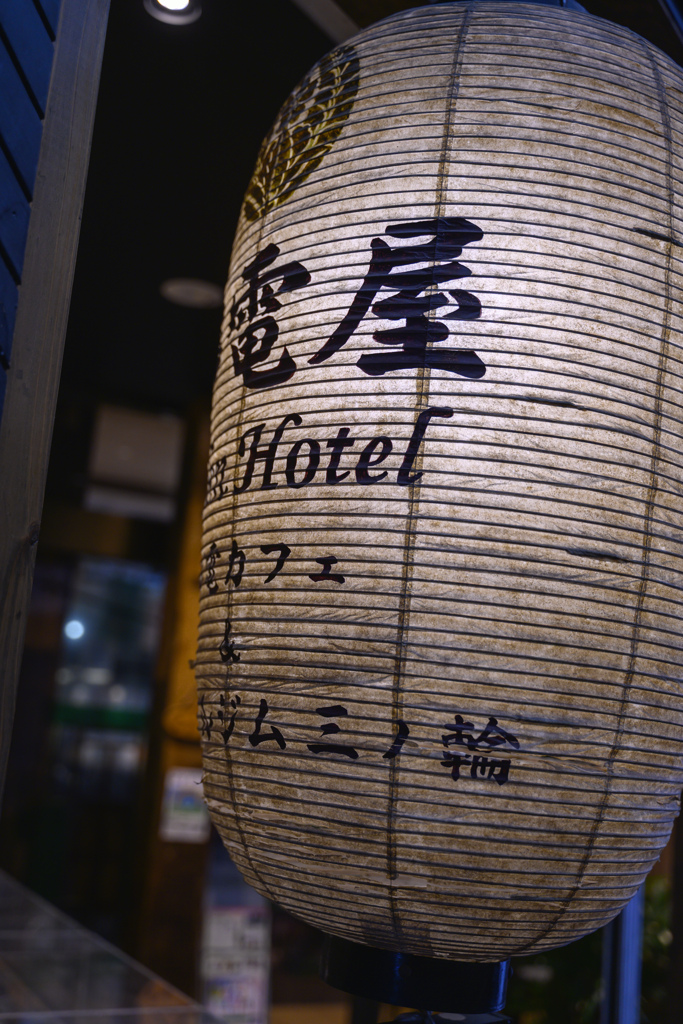 電屋
Hotel
カフェ
&
ジム三ノ輪